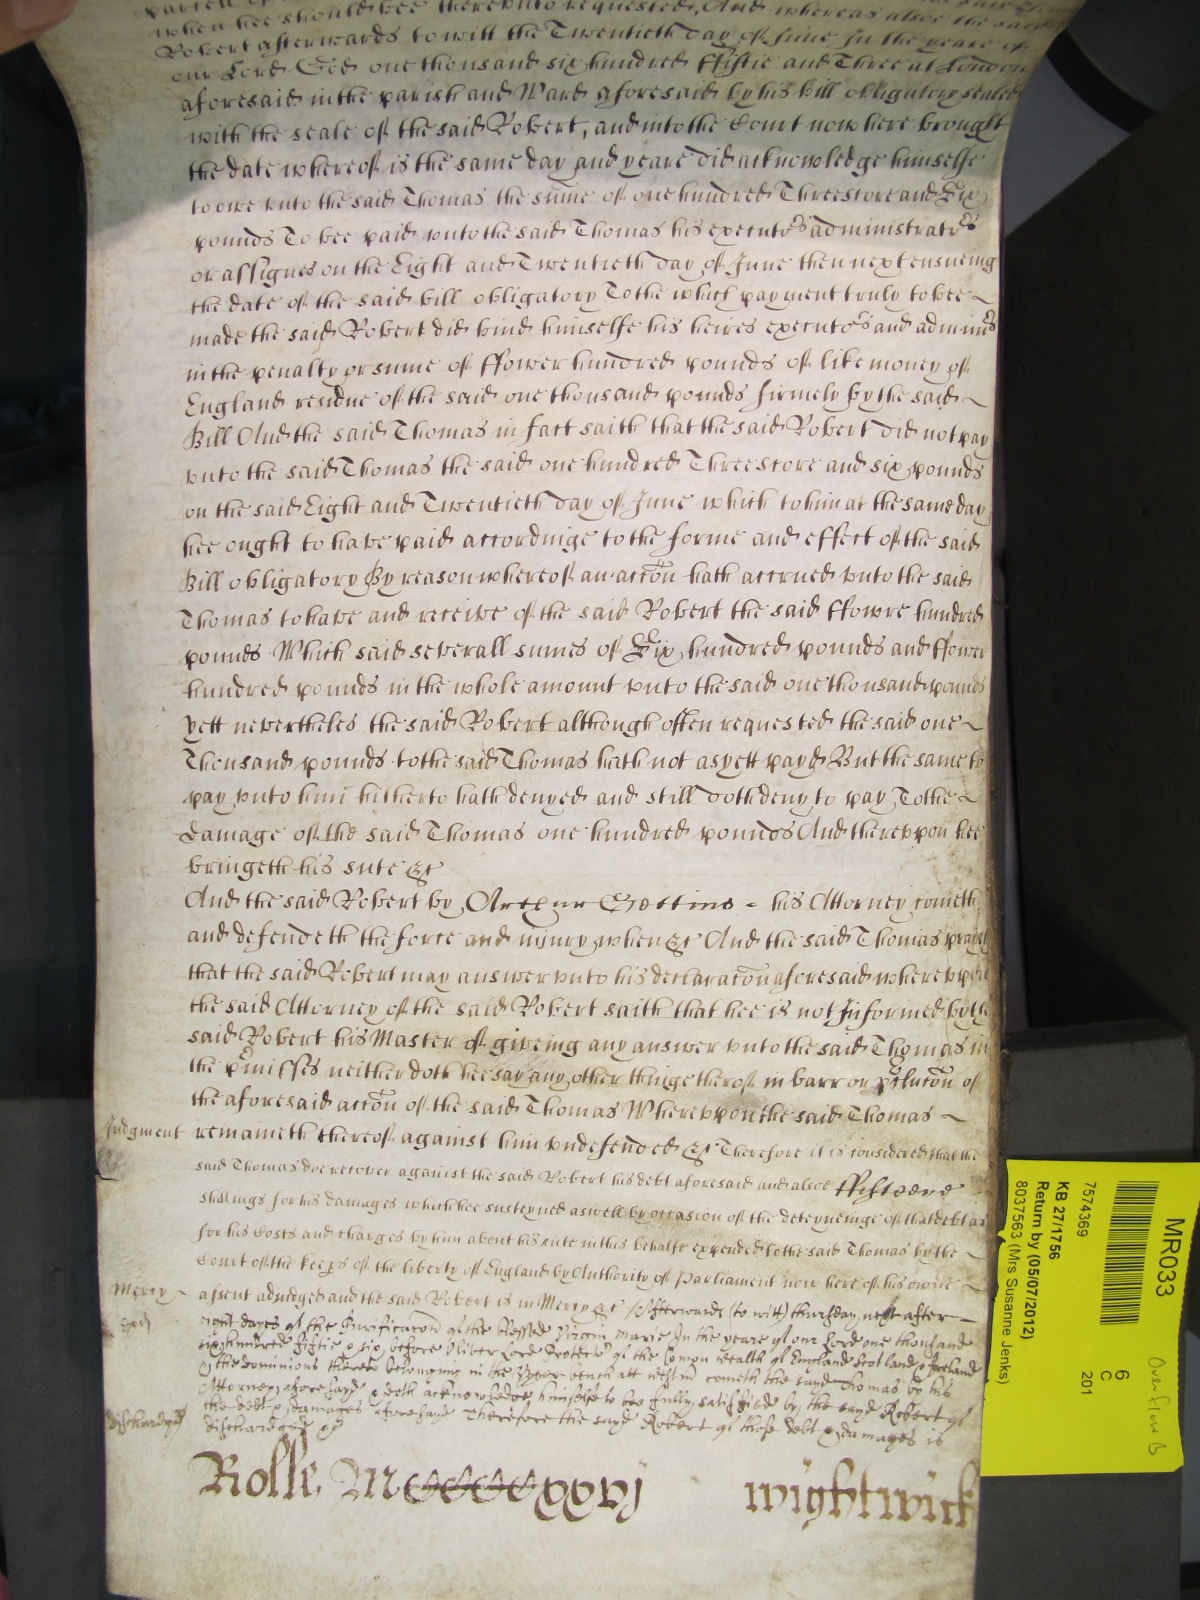 when hee should bee therevnto requested, And whereas alsoe the said
Robert afterwards to witt the Twentieth day of June In the yeare of
our Lord God one thousand six hundred ffiftie and Three at London
aforesaid in the parish and Ward aforesaid by his bill obligatory sealed
with the seale of the said Robert, and into the Court now here brought
the date whereof is the same day and yeare did acknowledge himselfe
to owe vnto the said Thomas the sume of one hundred Threescore and Six
pounds To bee paid vnto the said Thomas his executors administrators
or assignes on the Eight and Twentieth day of June then next ensueing
the date of the said bill obligatory To the which payment truly to bee
made the said Robert did bind himselfe his heires executors and adminrs
in the penalty or sume of ffower hundred pounds of like money of
England residue of the said one thousand pounds firmely by the said
Bill And the said Thomas in fact saith that the said Robert did not pay
vnto the said Thomas the said one hundred Threescore and six pounds
on the said Eight and Twentieth day of June which to him at the same day
hee ought to have paid accordinge to the forme and effect of the said
Bill obligatory By reason whereof an accon hath accrued vnto the said
Thomas to have and receive of the said Robert the said ffowre hundred
pounds Which said severall sumes of Six hundred pounds and ffower
hundred pounds in the whole amount vnto the said one thousand pounds
yett nevertheles the said Robert although often requested the said one
Thousand pounds to the said Thomas hath not as yett payd But the same to
pay vnto him hitherto hath denyed and still doth deny to pay To the
damage of the said Thomas one hundred pounds And therevpon hee
bringeth his sute &c
And the said Robert by his Attorney cometh
and defendeth the force and iniury when &c And the said Thomas prayeth
that the said Robert may answer vnto his declaracon aforesaid wherevpon
the said Attorney of the said Robert saith that hee is not Informed by the
said Robert his Master of giveing any answer vnto the said Thomas in
the pmisses neither doth hee say any other thinge therof in barr or pclucon of
the aforesaid accon of the said Thomas Wherevpon the said Thomas
Judgment remaineth thereof against him vndefended &c Therefore it is considered that the
said Thomas doe recover against the said Robert his debt aforesaid and alsoe ffifteene
shillings for his damages which hee susteyned aswell by occasion of the deteyneinge of that debt as
for his Costs and charges by him about his sute in this behalfe expended to the said Thomas by the
Court of the keeprs of the liberty of England by Authority of Parliament now here of his owne
Mercy assent adiudged and the said Robert is in Mercy &c Afterwards (to witt) thursday next after
eight dayes of the Purificacon of the Blessed Virgin Marie In the yeare of our Lord one thousand
six hundred fiftie & six before Oliver Lord Protector of the Comon wealth of England Scotland & Ireland
& the dominions thereto belonging in the Vpper bench att westm cometh the sayd Thomas by his
Attorney aforesayd & doth acknowledge himselfe to bee fully satisfied by the sayd Robert of
the debt & damages aforesayd Therefore the sayd Robert of those debt & damages is
dischardged &c
dischardged
Rolle MCCCCCxxvj wightwick
MR033
7574369
KB 27/1756
Return by (05/07/2012)
8037563 (Mrs Susanne Jenks)
6
C
201
Overflow B